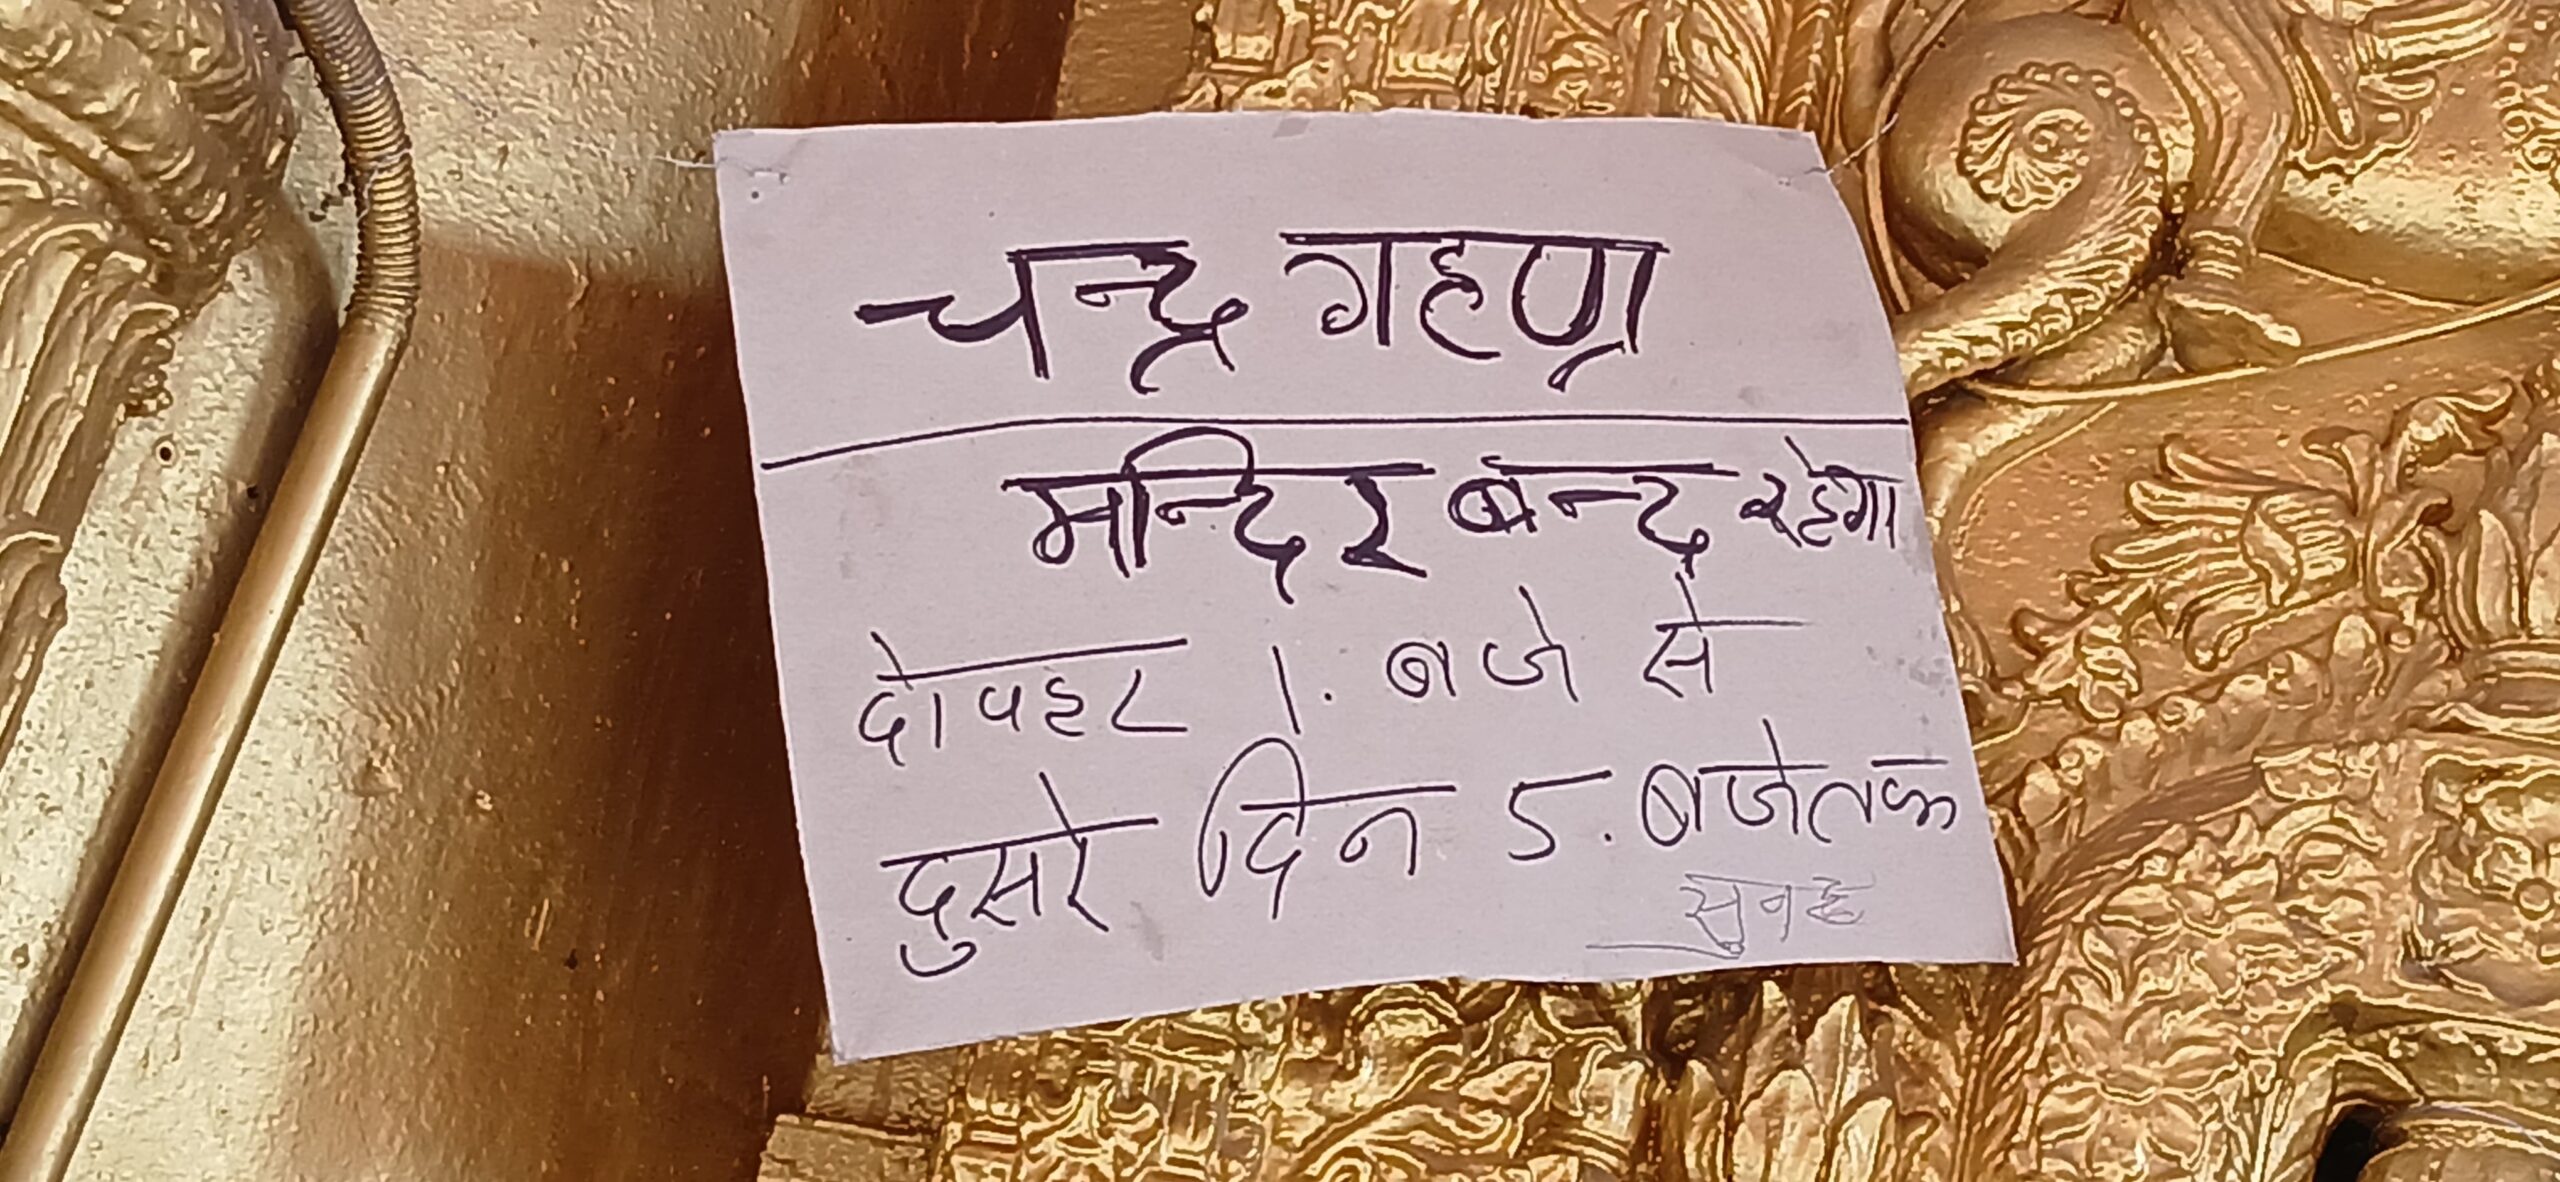 चन्द्र गहण
मन्दिर बन्द रहेगा
दोपहर 1. बजे से
दुसरे दिन 5. बजे तक
सुबह